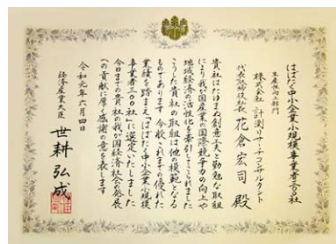 はばたく中小企業・小規模事業者300社
生産性向上部門
株式会社 計測リサーチコンサルタント
代表取締役社長 花倉宏司 殿
貴社はたゆまぬ創意工夫と勤勉な取組
により我が国産業の国際競争力の向上や
地域経済の活性化を牽引してこられました
こうした貴社の取組は他の模範となる
ものであります 今般これまでの優れた
業績を踏まえ「はばたく中小企業・小規模
事業者三〇〇社」に選定いたしました
今日までの貴社の我が国経済社会の発展
への貢献に厚く感謝の意を表します
令和元年六月四日
経済産業大臣 世耕弘成